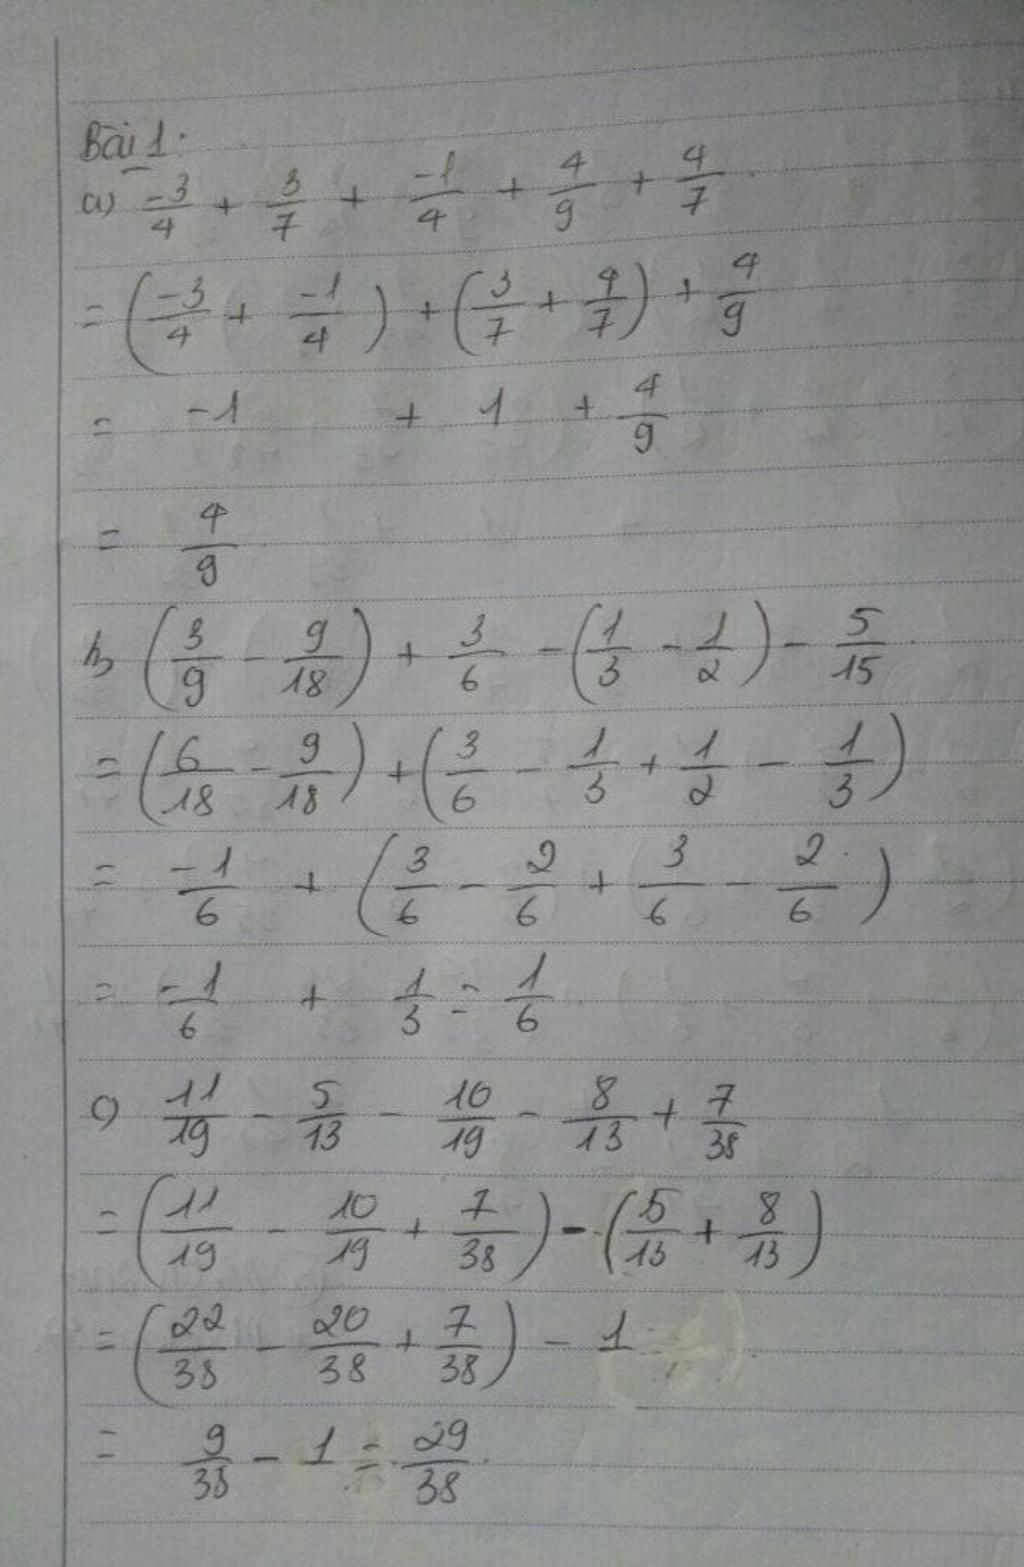 Bài 1:
a) -3/4 + 3/7 + -1/4 + 4/9 + 4/7
= (-3/4 + -1/4) + (3/7 + 4/7) + 4/9
= -1 + 1 + 4/9
= 4/9
b) (3/9 - 9/18) + 3/6 - (1/3 - 1/2) - 5/15
= (6/18 - 9/18) + (3/6 - 1/3 + 1/2 - 1/3)
= -1/6 + (3/6 - 2/6 + 3/6 - 2/6)
= -1/6 + 1/3 = 1/6
c) 11/19 - 5/13 - 10/19 - 8/13 + 7/38
= (11/19 - 10/19 + 7/38) - (5/13 + 8/13)
= (22/38 - 20/38 + 7/38) - 1
= 9/38 - 1 = 29/38